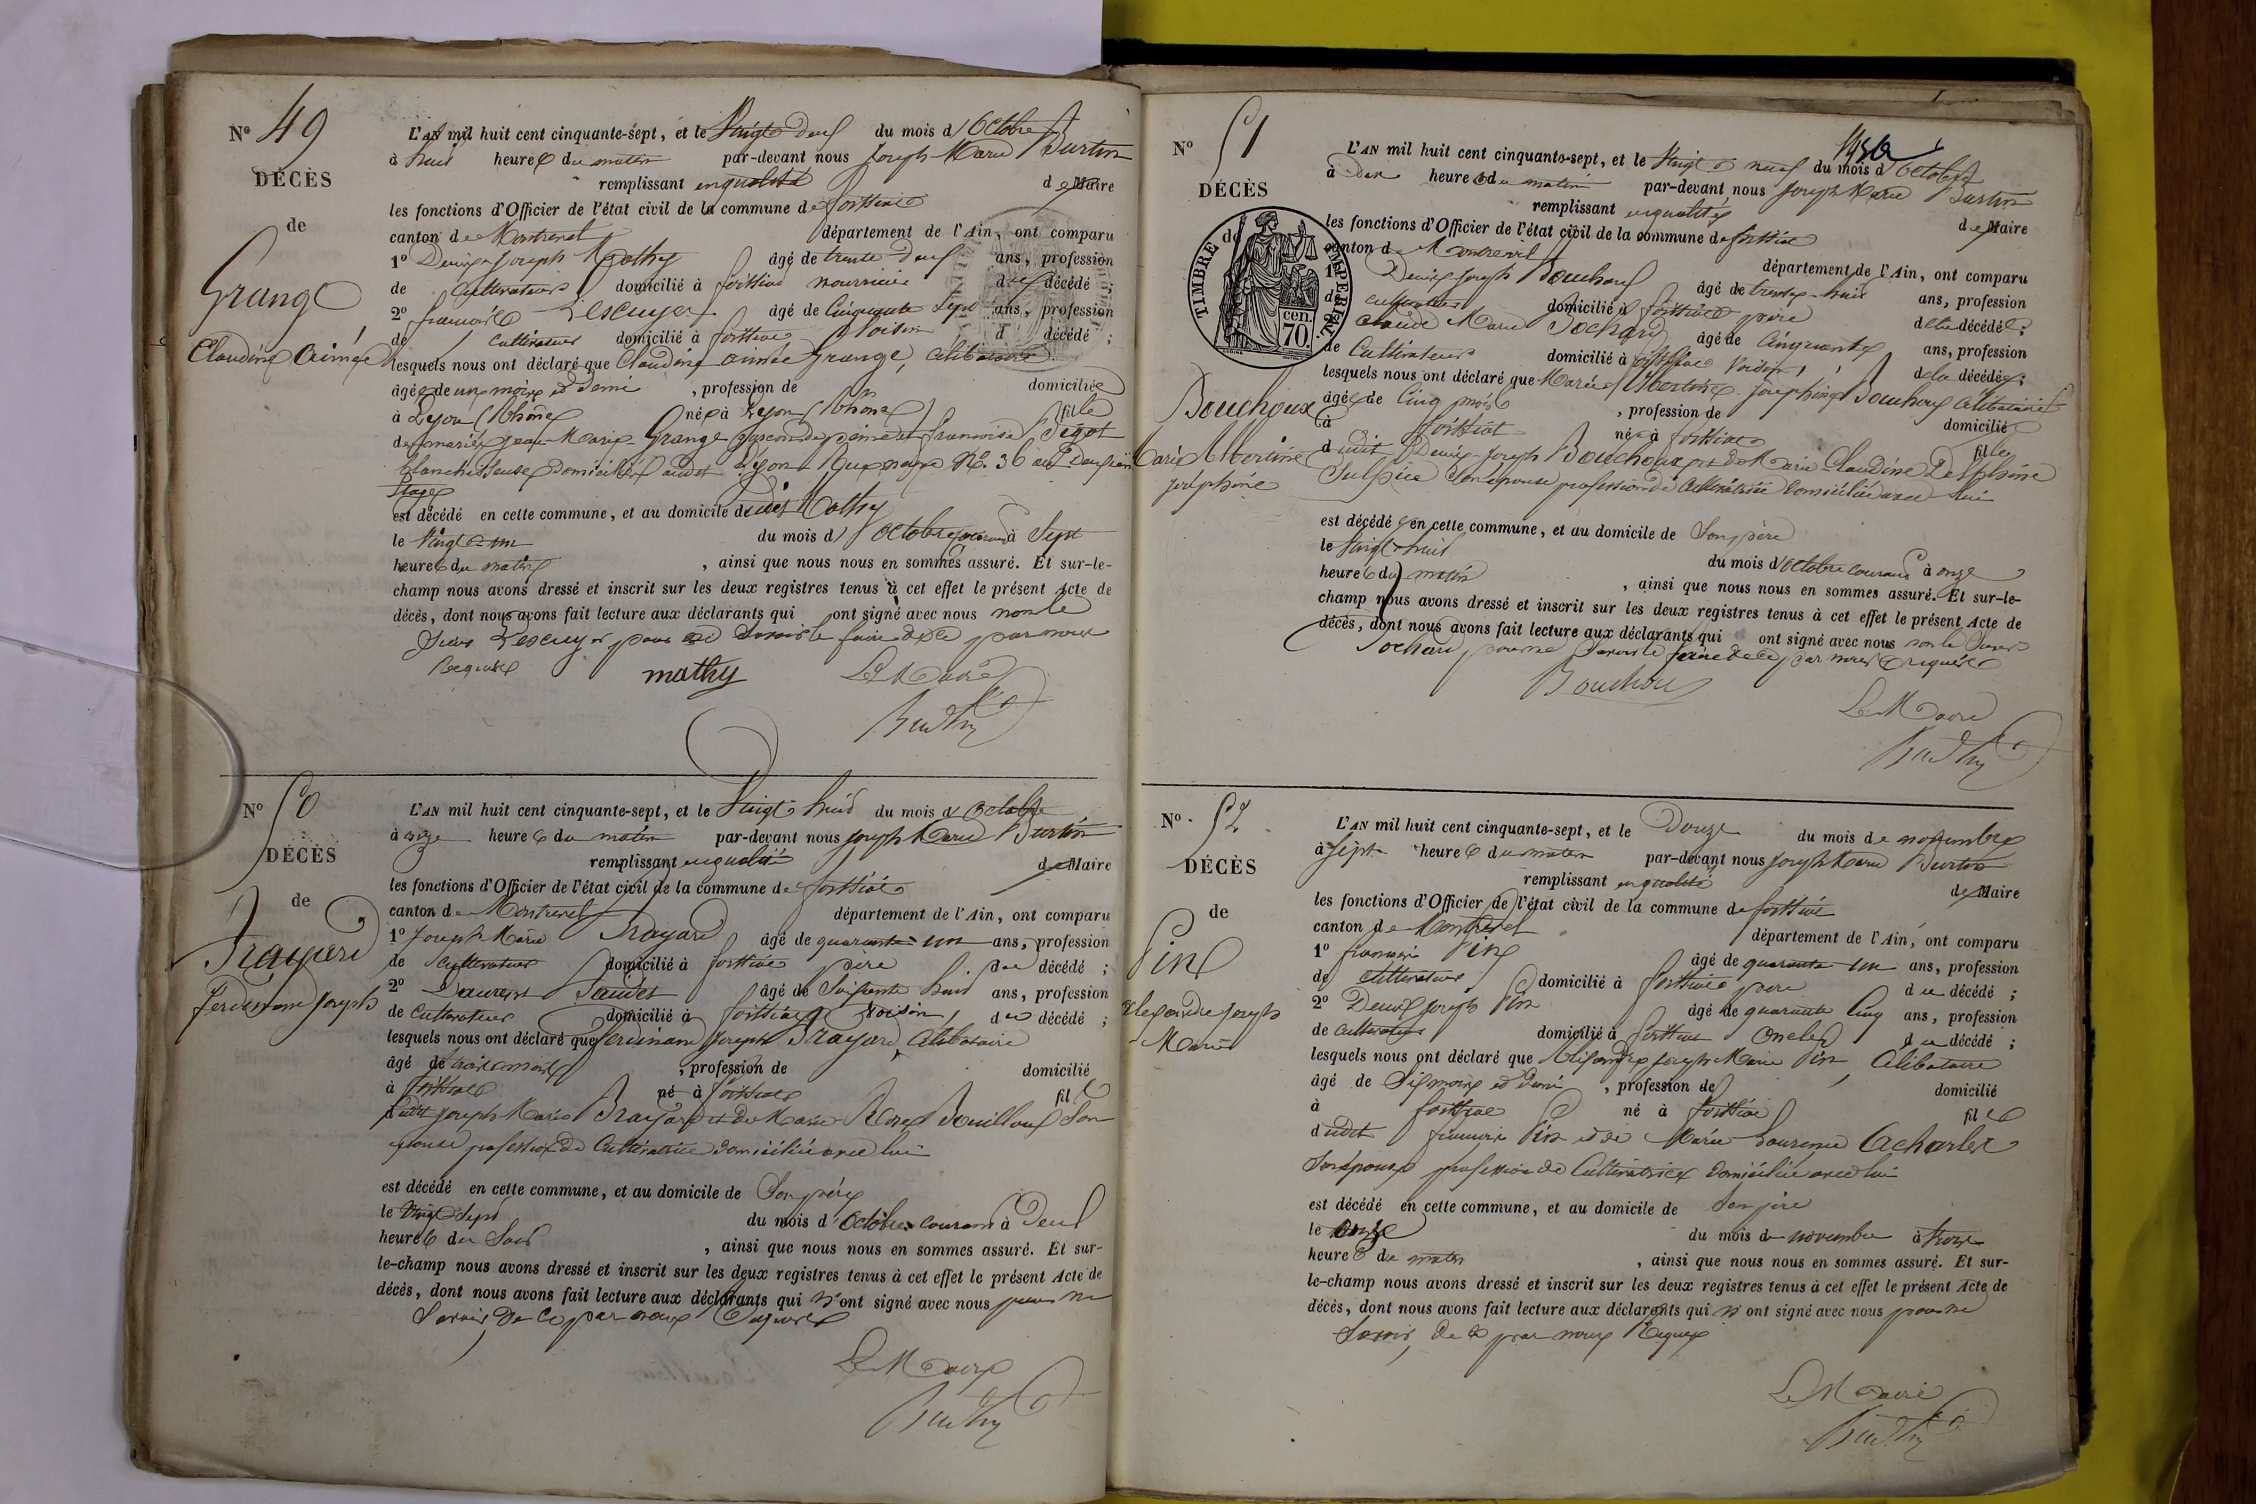 N° 49
DÉCÈS
de
Grange
Claudine Aimée
L'AN mil huit cent cinquante-sept, et le Vingt deux du mois d'Octobre
à huit heures du matin par-devant nous Joseph Marie Burtin
remplissant en qualité de Maire
les fonctions d'Officier de l'état civil de la commune de foissiat
canton de Montrevel département de l'Ain, ont comparu
1° Denis Joseph Mathy âgé de trente deux ans, profession
de Cultivateur domicilié à foissiat nourricier du décédé ;
2° françois Lescuyer âgé de Cinquante Sept ans, profession
de Cultivateur domicilié à foissiat Voisin d décédé ;
lesquels nous ont déclaré que Claudine aimée Grange, célibataire
âgée de un mois et demi , profession de domiciliée
à Lyon (Rhône) née à Lyon (Rhône) fille
de mariés Jean-Marie Grange garçon de peine et françoise
Blanchisseuse domiciliés audit Lyon N°. 36 au
Etage
est décédé en cette commune, et au domicile dudit Mathy
le Vingt-un du mois d'octobre courant à Sept
heures du matin , ainsi que nous nous en sommes assuré. Et sur-le-
champ nous avons dressé et inscrit sur les deux registres tenus à cet effet le présent Acte de
décès, dont nous avons fait lecture aux déclarants qui ont signé avec nous non le
Sieur Lescuyer pour ne Savoir le faire de ce par nous
Requis
mathy Le Maire
Burtin
N° 50
DÉCÈS
de
Brayard
ferdinand Joseph
L'AN mil huit cent cinquante-sept, et le Vingt-huit du mois d'Octobre
à onze heures du matin par-devant nous Joseph Marie Burtin
remplissant en qualité de Maire
les fonctions d'Officier de l'état civil de la commune de foissiat
canton de Montrevel département de l'Ain, ont comparu
1° Joseph Marie Brayard âgé de quarante-un ans, profession
de Cultivateur domicilié à foissiat père du décédé ;
2° Laurent âgé de Soixante huit ans, profession
de Cultivateur domicilié à foissiat Voisin, du décédé ;
lesquels nous ont déclaré que ferdinand Joseph Brayard, célibataire
âgé de trois mois , profession de domicilié
à foissiat né à foissiat fils
dudit Joseph Marie Brayard et de Marie Rose Bouilloux Son
épouse profession de Cultivatrice domiciliée avec lui
est décédé en cette commune, et au domicile de Son père
le Vingt Sept du mois d'Octobre courant à Deux
heures du Soir , ainsi que nous nous en sommes assuré. Et sur-
le-champ nous avons dressé et inscrit sur les deux registres tenus à cet effet le présent Acte de
décès, dont nous avons fait lecture aux déclarants qui n'ont signé avec nous pour ne
Savoir, De Ce par nous Requis
Le Maire
Burtin
N° 51
DÉCÈS
de
TIMBRE IMPERIAL.
70 cen.
Bouchoux
Marie Albertine
Josephine
L'AN mil huit cent cinquante-sept, et le Vingt neuf du mois d'Octobre
à Dix heures du matin par-devant nous Joseph Marie Burtin
remplissant en qualité de Maire
les fonctions d'Officier de l'état civil de la commune de foissiat
canton de Montrevel département de l'Ain, ont comparu
1° Denis Joseph Bouchoux âgé de trente-huit ans, profession
de Cultivateur domicilié à foissiat père de la décédée ;
2° Claude Marie Pochard âgé de Cinquante ans, profession
de Cultivateur domicilié à foissiat Voisin, de la décédée ;
lesquels nous ont déclaré que Marie Albertine Josephine Bouchoux Célibataire
âgée de Cinq mois , profession de domiciliée
à foissiat née à foissiat fille
dudit Denis-Joseph Bouchoux et de Marie Claudine Delphine
Sulpice Son épouse profession de Cultivatrice domiciliée avec lui
est décédée en cette commune, et au domicile de Son père
le Vingt-huit du mois d'Octobre courant à onze
heures du matin , ainsi que nous nous en sommes assuré. Et sur-le-
champ nous avons dressé et inscrit sur les deux registres tenus à cet effet le présent Acte de
décès, dont nous avons fait lecture aux déclarants qui ont signé avec nous non le Sieur
Pochard, pour ne Savoir le faire de ce par nous Requis
Bouchoux
Le Maire
Burtin
N° 52
DÉCÈS
de
Pin
Alexandre Joseph
Marie
L'AN mil huit cent cinquante-sept, et le Douze du mois de novembre
à Sept heures du matin par-devant nous Joseph Marie Burtin
remplissant en qualité de Maire
les fonctions d'Officier de l'état civil de la commune de foissiat
canton de Montrevel département de l'Ain, ont comparu
1° françois Pin âgé de quarante-un ans, profession
de Cultivateur domicilié à foissiat père du décédé ;
2° Denis Joseph Pin âgé de quarante Cinq ans, profession
de Cultivateur domicilié à foissiat Oncle du décédé ;
lesquels nous ont déclaré que Alexandre Joseph Marie Pin, Célibataire
âgé de Six mois et demi , profession de domicilié
à foissiat né à foissiat fils
dudit françois Pin et de Marie Laurence
Son épouse profession de Cultivatrice domiciliée avec lui
est décédé en cette commune, et au domicile de Son père
le onze du mois de novembre à
heures du matin , ainsi que nous nous en sommes assuré. Et sur-
le-champ nous avons dressé et inscrit sur les deux registres tenus à cet effet le présent Acte de
décès, dont nous avons fait lecture aux déclarants qui n'ont signé avec nous pour ne
Savoir, De ce par nous Requis
Le Maire
Burtin